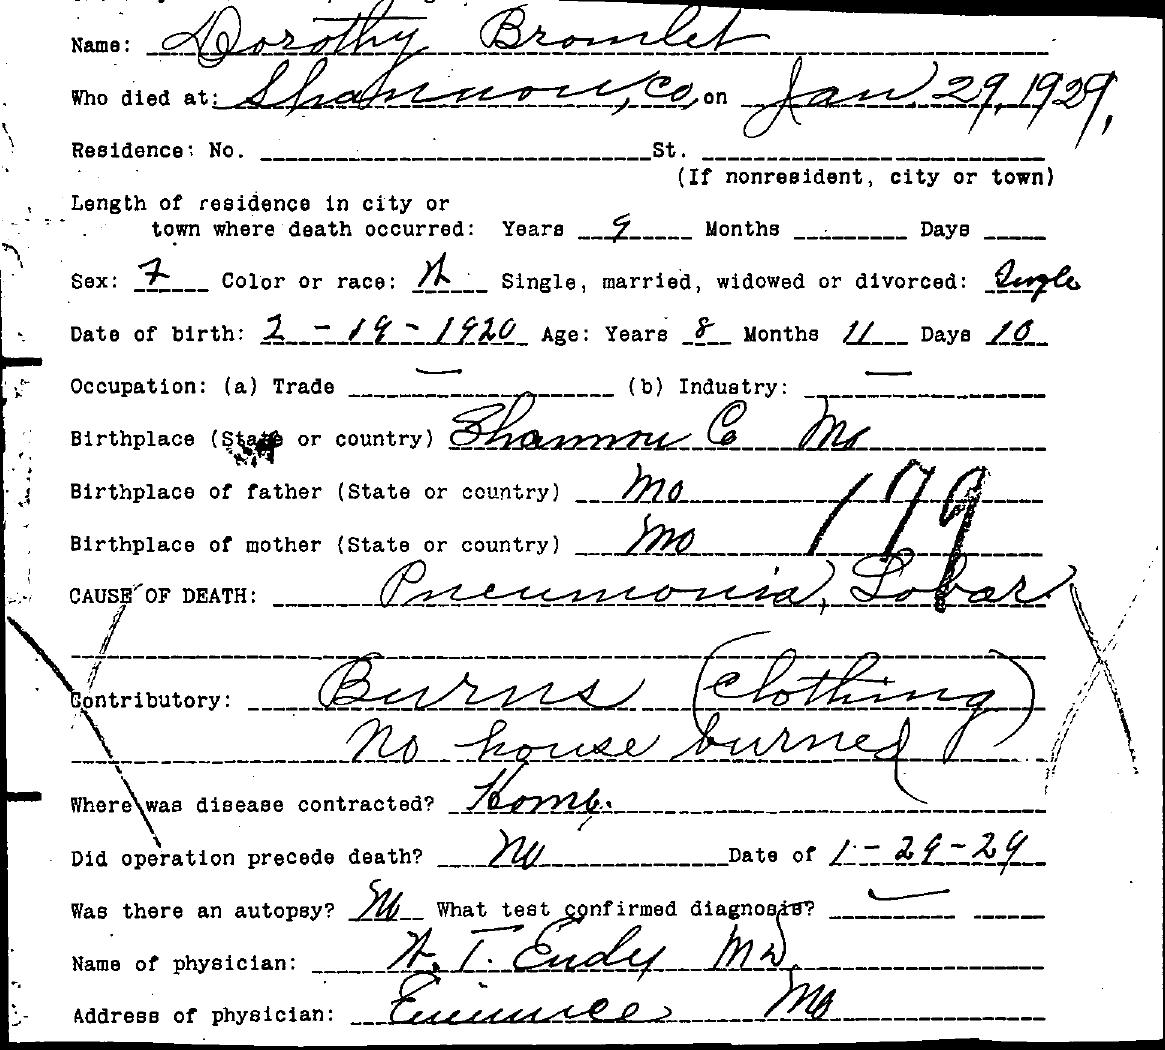 Name: Dorothy Bromlet
Who died at: Shannon, Co, on Jan. 29, 1929,
Residence: No. St.
(If nonresident, city or town)
Length of residence in city or
town where death occurred: Years 9 Months Days
Sex: F Color or race: W Single, married, widowed or divorced: Single
Date of birth: 2-19-1920 Age: Years 8 Months 11 Days 10
Occupation: (a) Trade — (b) Industry: —
Birthplace (State or country) Shannon Co Mo
Birthplace of father (State or country) Mo
179
Birthplace of mother (State or country) Mo
CAUSE OF DEATH: Pneumonia, Lobar
Contributory: Burns (clothing)
No house burned
Where was disease contracted? Home.
Did operation precede death? No Date of 1-29-29
Was there an autopsy? No What test confirmed diagnosis? —
Name of physician: W. T. Eudy MD.
Address of physician: Eminence Mo